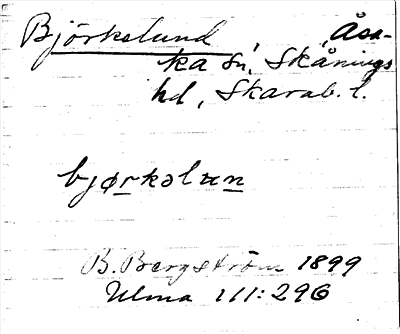 Björkslund Åsa-
ka sn, Skånings
hd, Skarab. l.
bjørkslun
B. Bergström 1899
Ulma 111:296